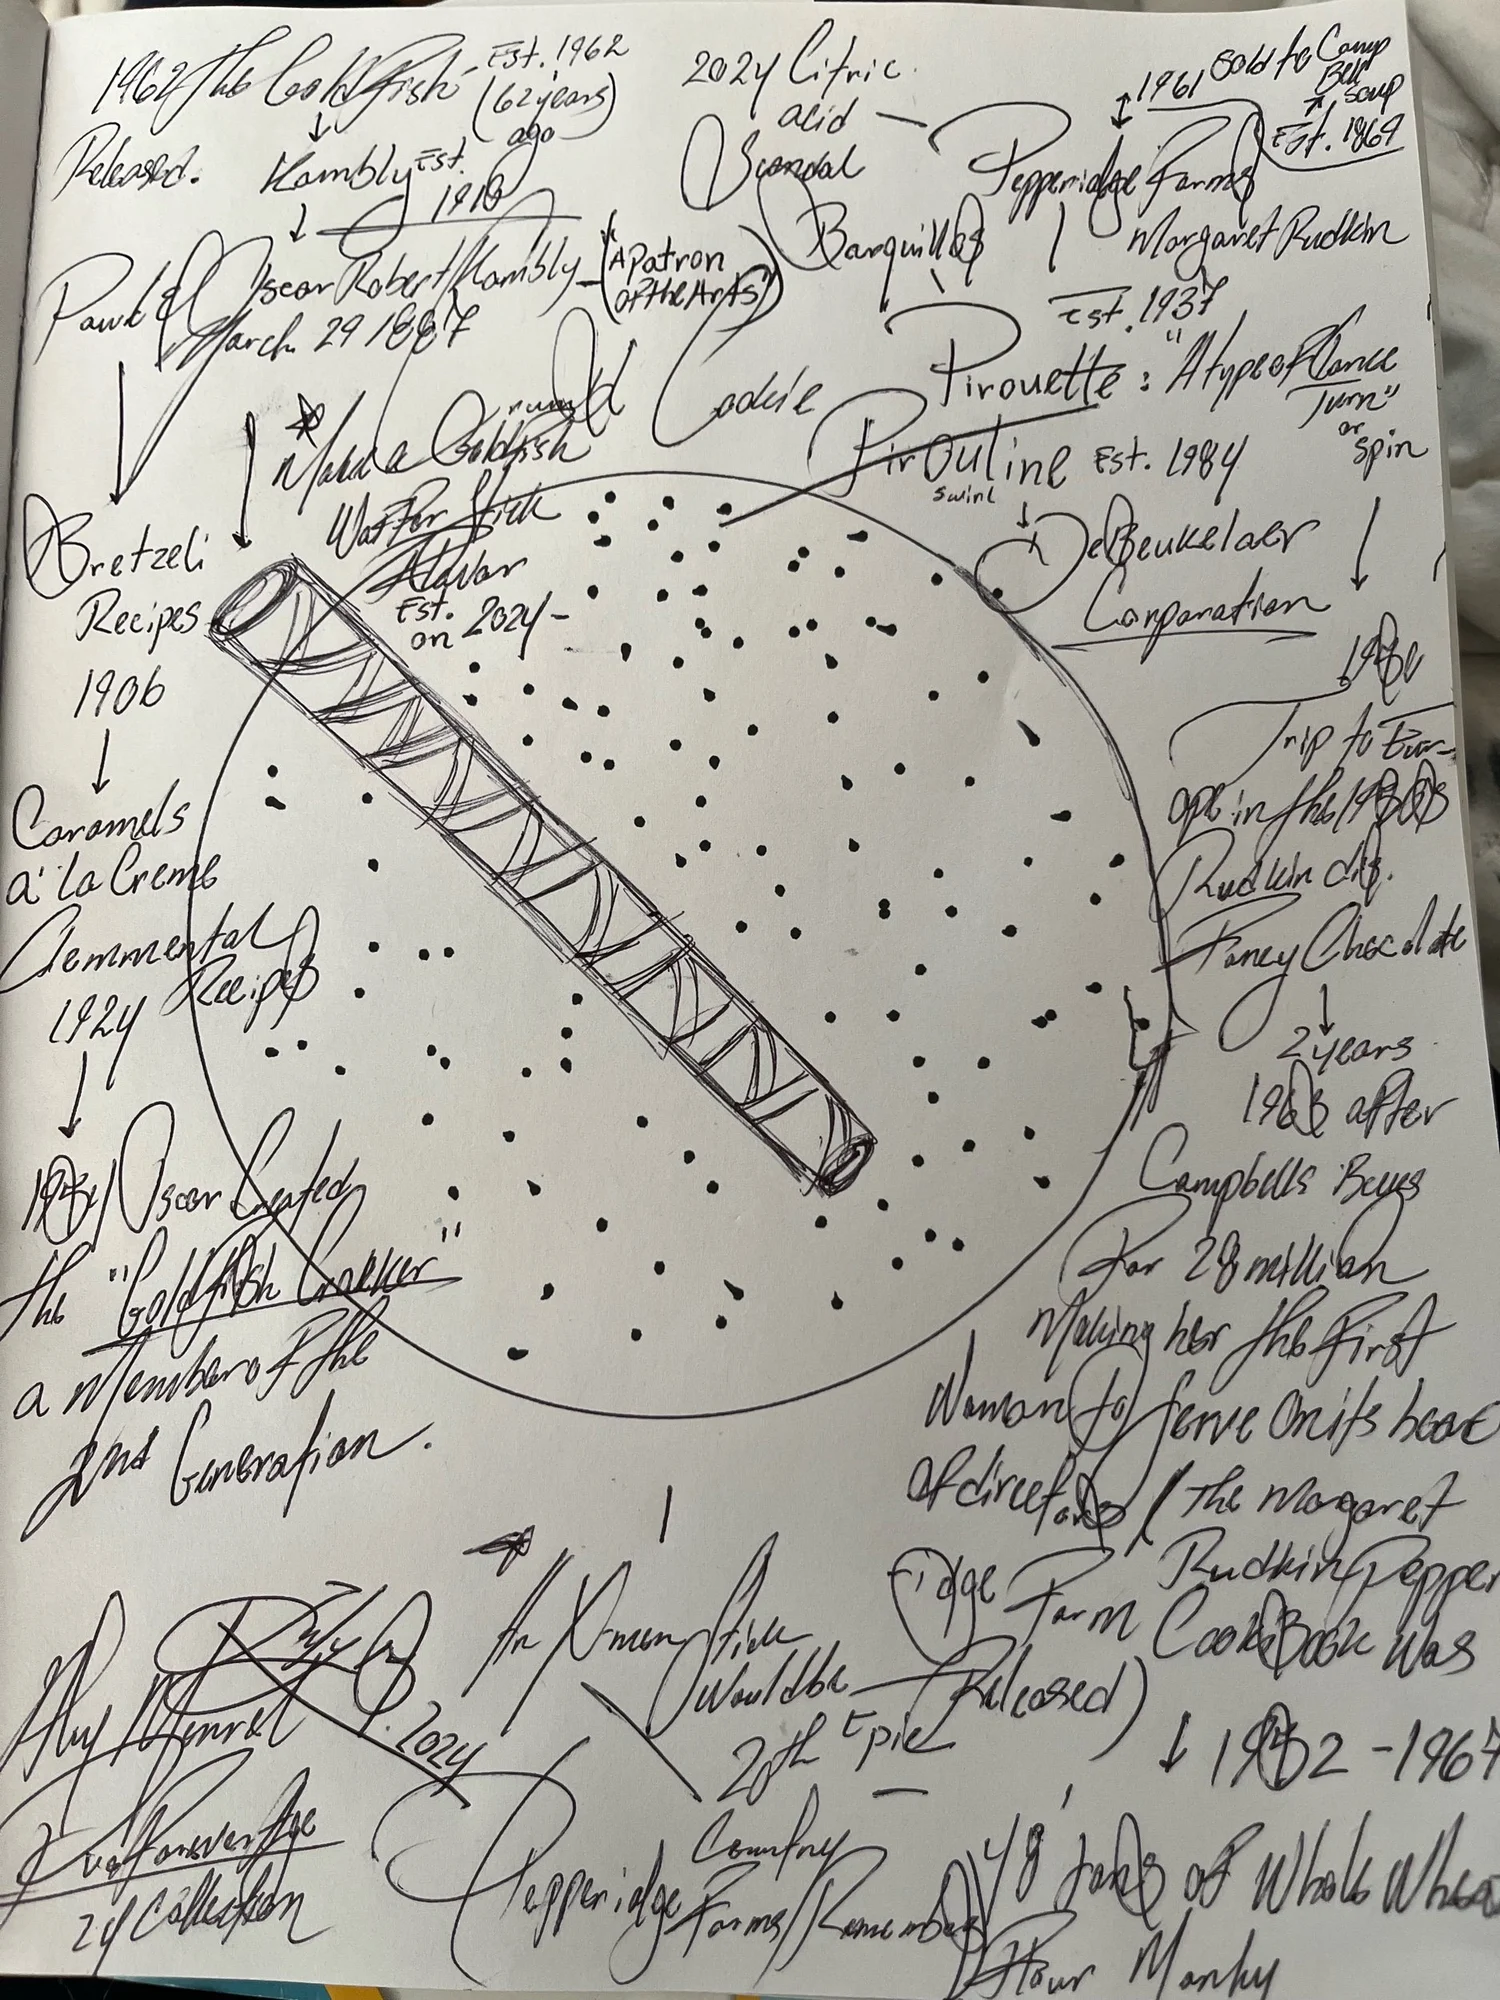 1962 The Goldfish - Est. 1962
(62 years
ago)
Released.
Kambly Est.
1910
Oscar Robert Kambly - (A patron
of the Arts")
March 29 1887
2024 Citric
acid -
Scandal
Barquillos
1961 Sold to Camp
Bell
Soup
Est. 1869
Pepperidge Farms
Margaret Rudkin
Est. 1937
Pirouette: "A type of Dance
Turn"
or
spin
Cookie
Pirouline Est. 1984
swirl
DeBeukelaer
Corporation
Make a Goldfish
Waffer Stick
Flavor
Est.
on 2024 -
Bretzeli
Recipes
1906
Caramels
a' la Creme
Recipes
1924
Oscar Created
the "Goldfish Cracker"
a Member of the
2nd Generation.
Trip to Eur-
ope in the
Rudkin dis.
Fancy Chocolate
2 years
after
Campbells Buys
For 28 million
Making her the First
Woman to Serve On its boar
of directors / The Margaret
Rudkin Pepper
ridge Farm CookBook was
(Released)
- 1967
48 tons of Whole Whea
Flour
An X-men Stick
Would be
20th Epic
Country
Pepperidge Farms Remembers
2024
24 Collection